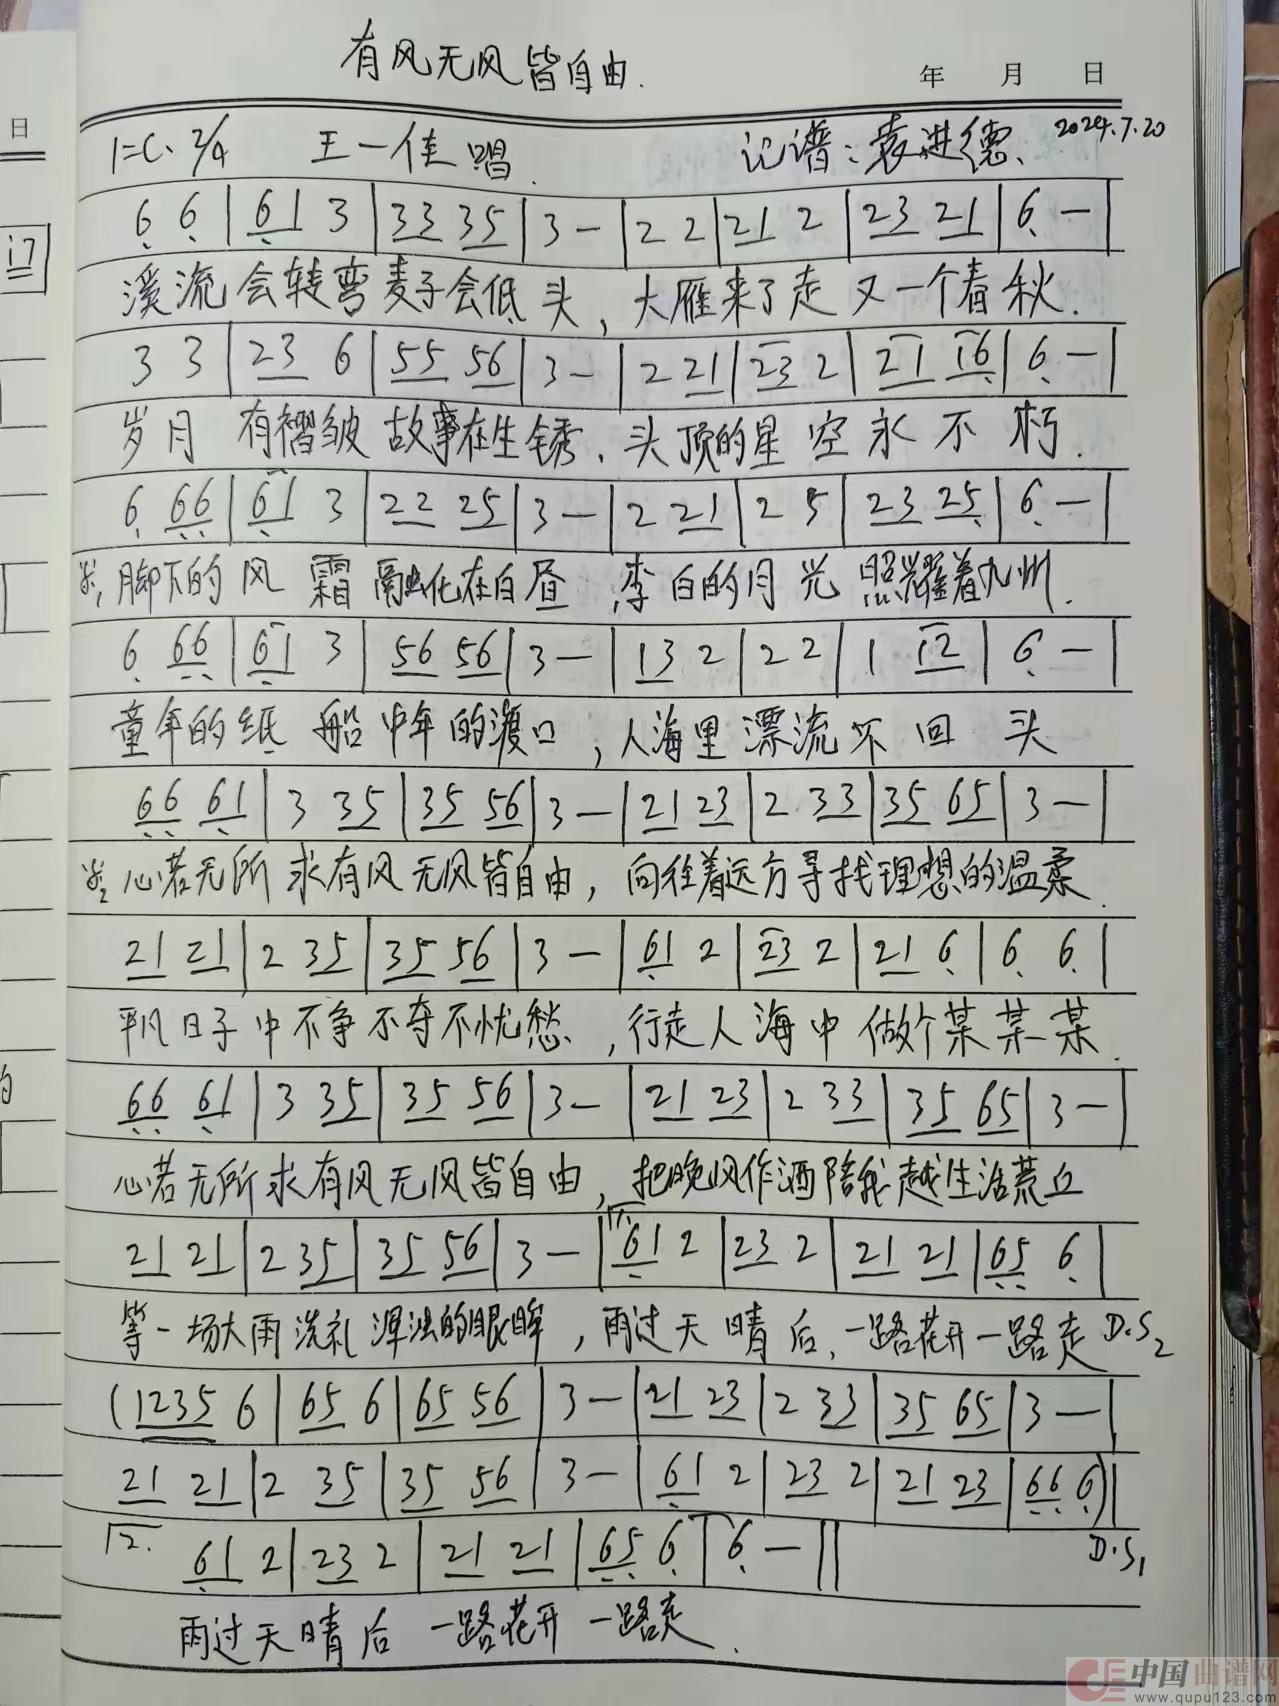 有风无风皆自由.
年 月 日
日
1=C. 2/4 王一佳唱. 记谱:袁进德. 2024.7.20
6 6 | 61 3 | 33 35 | 3 - | 2 2 | 21 2 | 23 21 | 6 - |
17
溪流会转弯麦子会低头,大雁来了走又一个春秋.
3 3 | 23 6 | 55 56 | 3 - | 2 21 | 23 2 | 21 16 | 6 - |
岁月有褶皱故事在生锈.头顶的星空永不朽.
6 66 | 61 3 | 22 25 | 3 - | 2 21 | 2 5 | 23 25 | 6 - |
脚下的风霜融化在白昼.李白的月光照耀着九州.
6 66 | 61 3 | 56 56 | 3 - | 13 2 | 2 2 | 1 12 | 6 - |
童年的纸船中年的渡口,人海里漂流不回头
66 61 | 3 35 | 35 56 | 3 - | 21 23 | 2 33 | 35 65 | 3 - |
心若无所求有风无风皆自由,向往着远方寻找理想的温柔.
21 21 | 2 35 | 35 56 | 3 - | 61 2 | 23 2 | 21 6 | 6 6 |
平凡日子中不争不夺不忧愁.,行走人海中做个某某某.
66 61 | 3 35 | 35 56 | 3 - | 21 23 | 2 33 | 35 65 | 3 - |
心若无所求有风无风皆自由,把晚风作酒陪我越生活荒丘
21 21 | 2 35 | 35 56 | 3 - | 1. 61 2 | 23 2 | 21 21 | 65 6 |
等一场大雨洗礼浑浊的眼眸,雨过天晴后,一路花开一路走 D.S2
(1235 6 | 65 6 | 65 56 | 3 - | 21 23 | 2 33 | 35 65 | 3 - |
21 21 | 2 35 | 35 56 | 3 - | 61 2 | 23 2 | 21 23 | 66 6) ||
2. 61 2 | 23 2 | 21 21 | 65 6 | 6 - || D.S1
雨过天晴后一路花开一路走.
中国曲谱网
www.qupu123.com